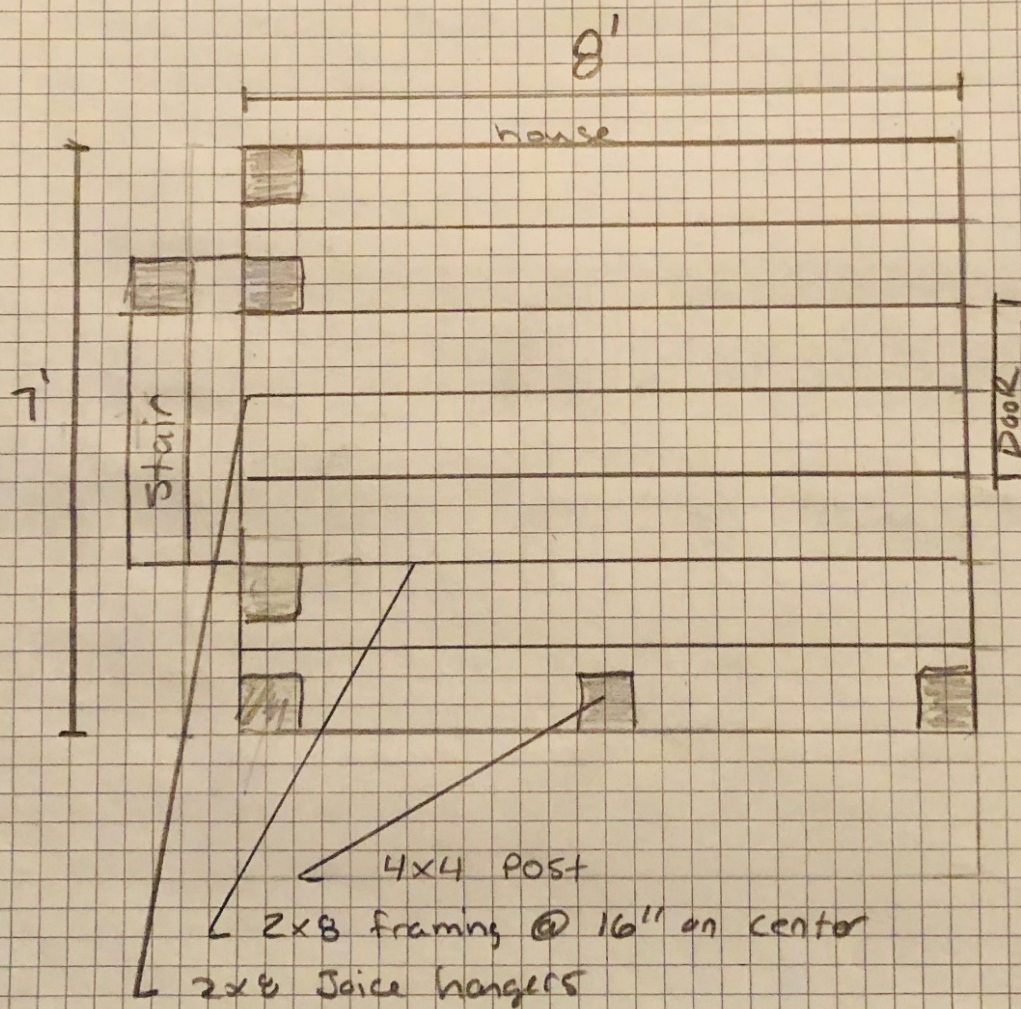 8'
house
7'
Stair
DooR
4x4 Post
2x8 framing @ 16" on center
2x8 Joice hangers